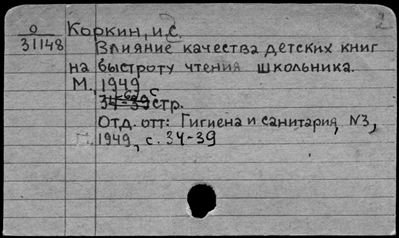 0 Коркин, И.С. 2
31148 Влияние качества детских книг
на быстроту чтения школьника.
М., 1949
34-39 стр.
Отд. отт: Гигиена и санитария, N3,
1949, с. 34-39